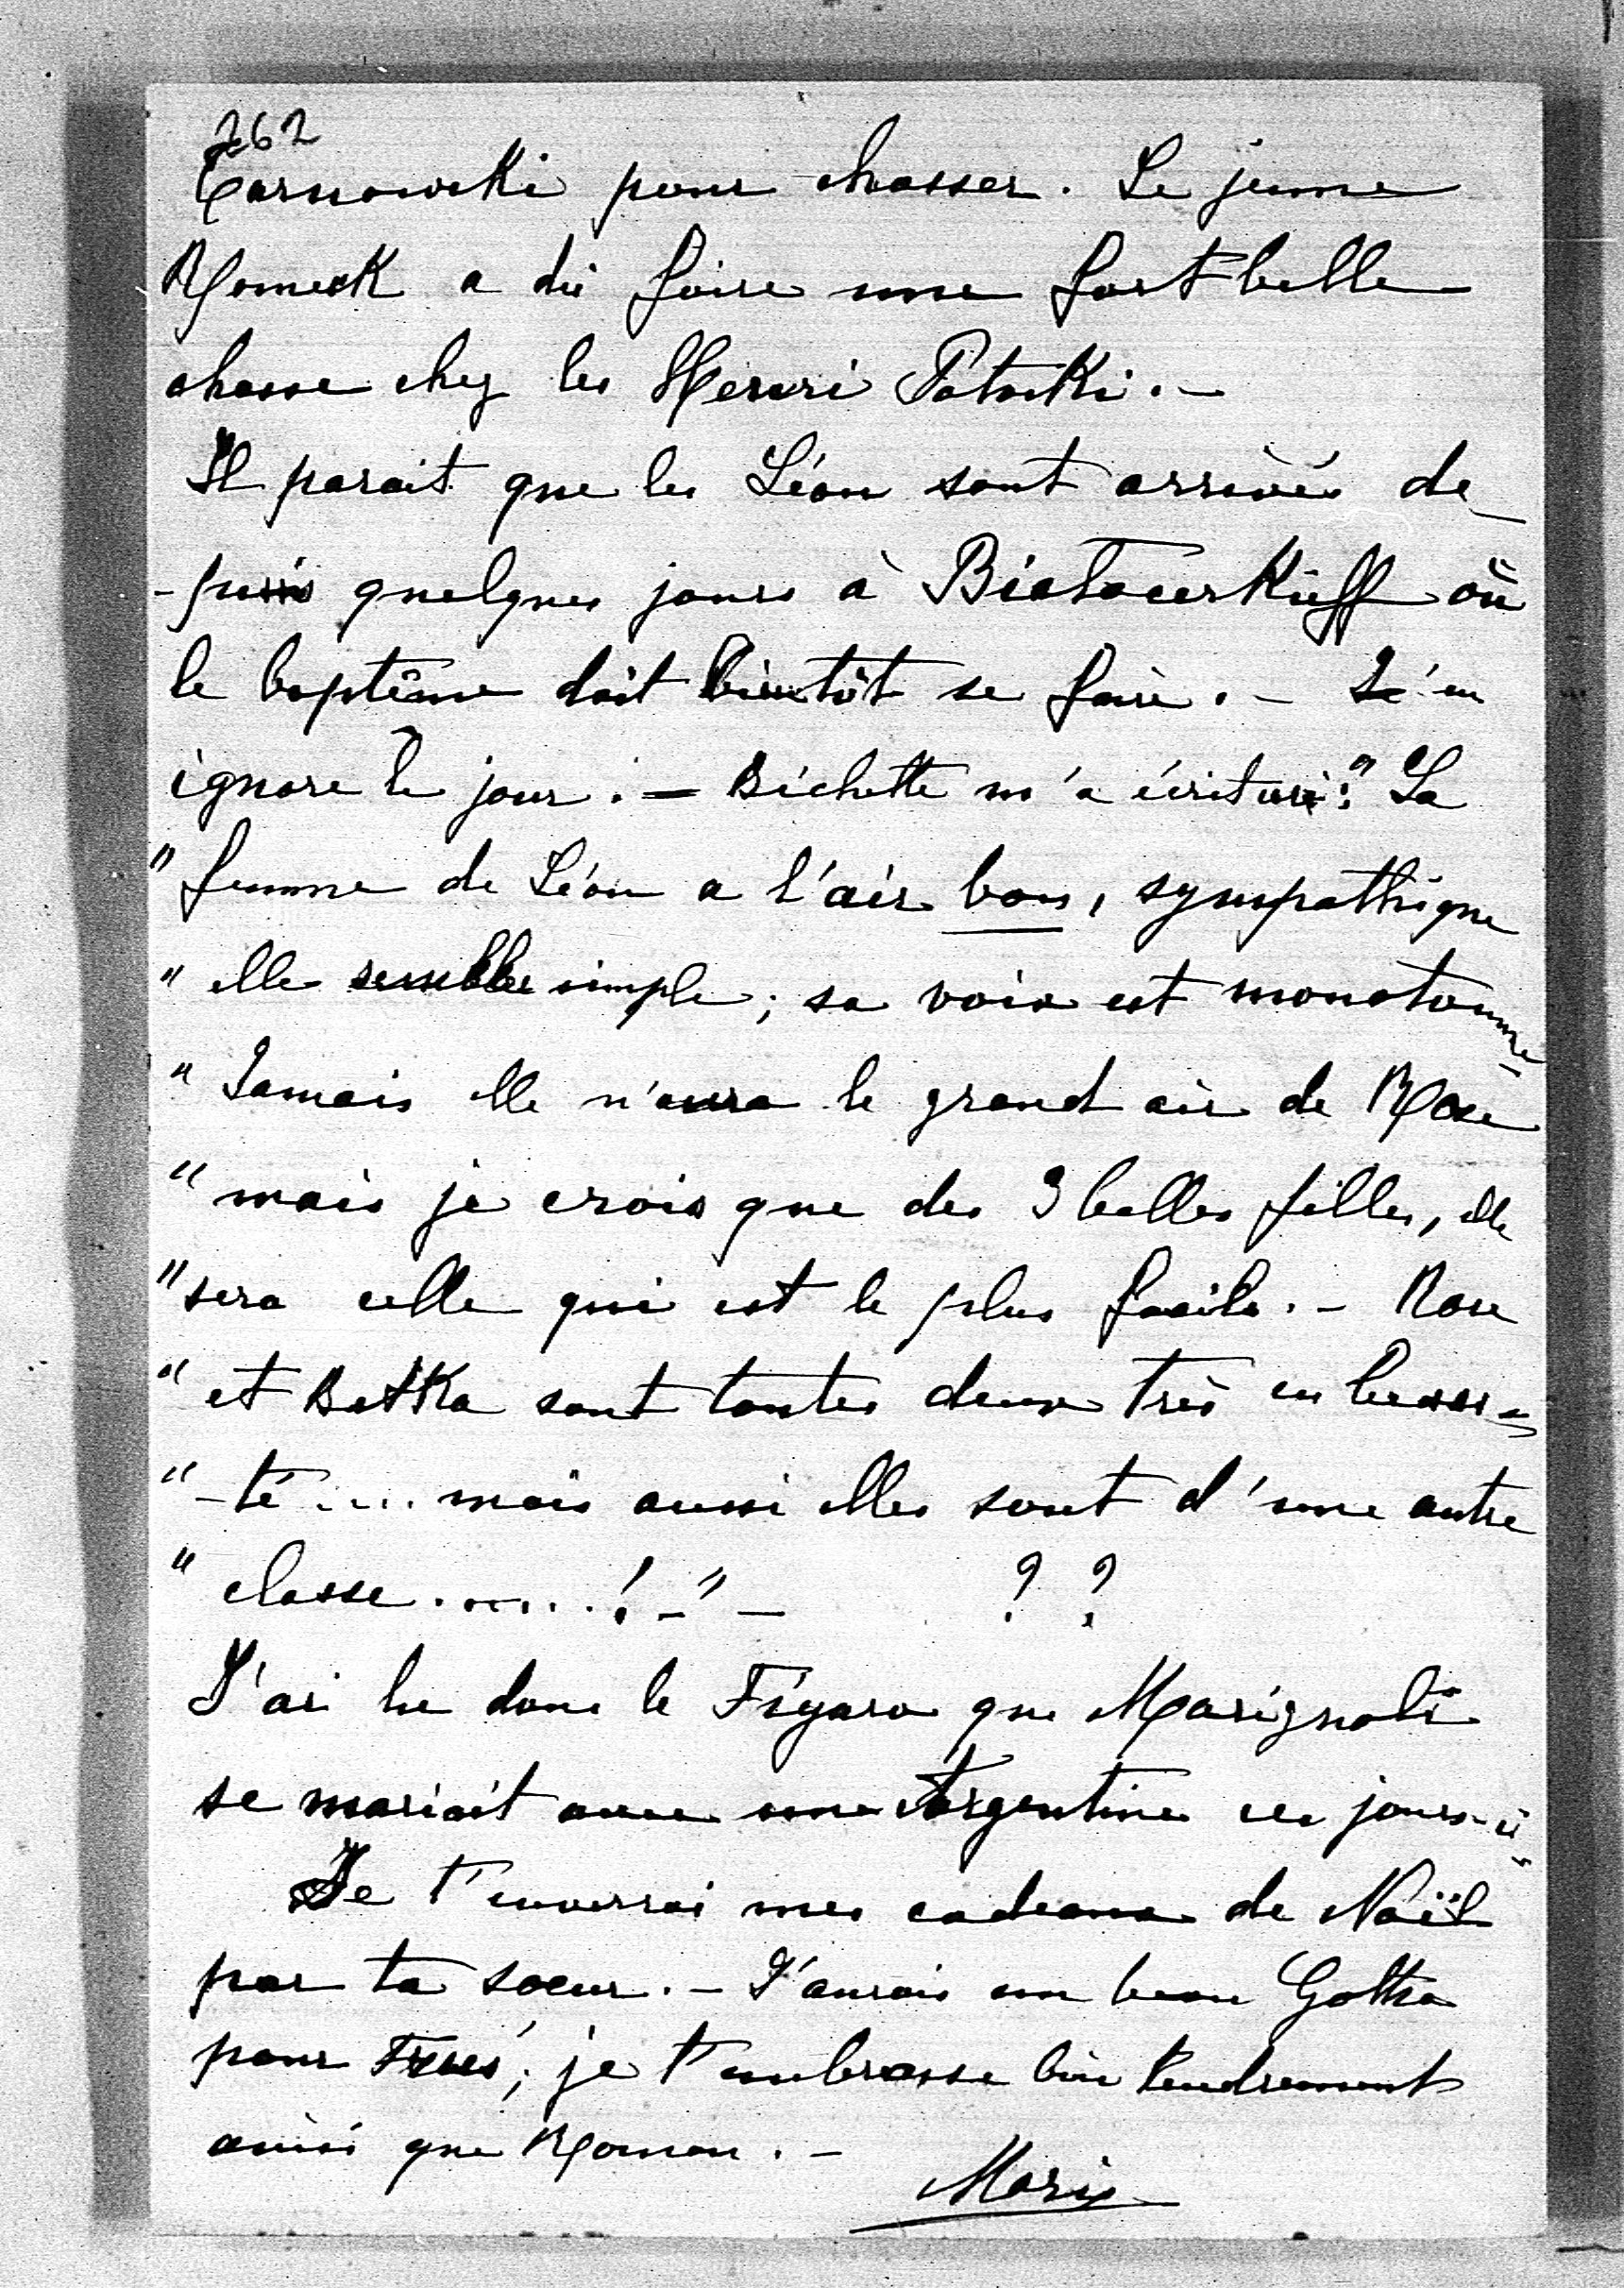 262
Tarnowski pour chasser. Le jeune
Romeck a dû faire une fort belle
chasse chez les Henri Potocki. –
Il parait que les Léon sont arrivés de
-puis quelques jours à Biatocerkieff où
le baptême doit bientôt se faire. – J'en
ignore le jour. – Bichette m'a écrit : " La
" femme de Léon a l'air bon, sympathique
" elle semble simple ; sa voix est monotonne
" Jamais elle n'aura le grand air de Rose
" mais je crois que des 3 belles filles, elle
" sera celle qui est le plus facile. – Rose
" et Betka sont toutes deux très en beau-
" -té .... mais aussi elles sont d'une autre
" classe ....... ! – " – ? ?
J'ai lu dans le Figaro que Marignoli
se mariait avec une Argentine ces jours-ci
Je t'enverrai mes cadeaux de Noël
par ta soeur. – J'aurais un beau Gotha
pour ; je t'embrasse bien tendrement
ainsi que Roman. –
Marie